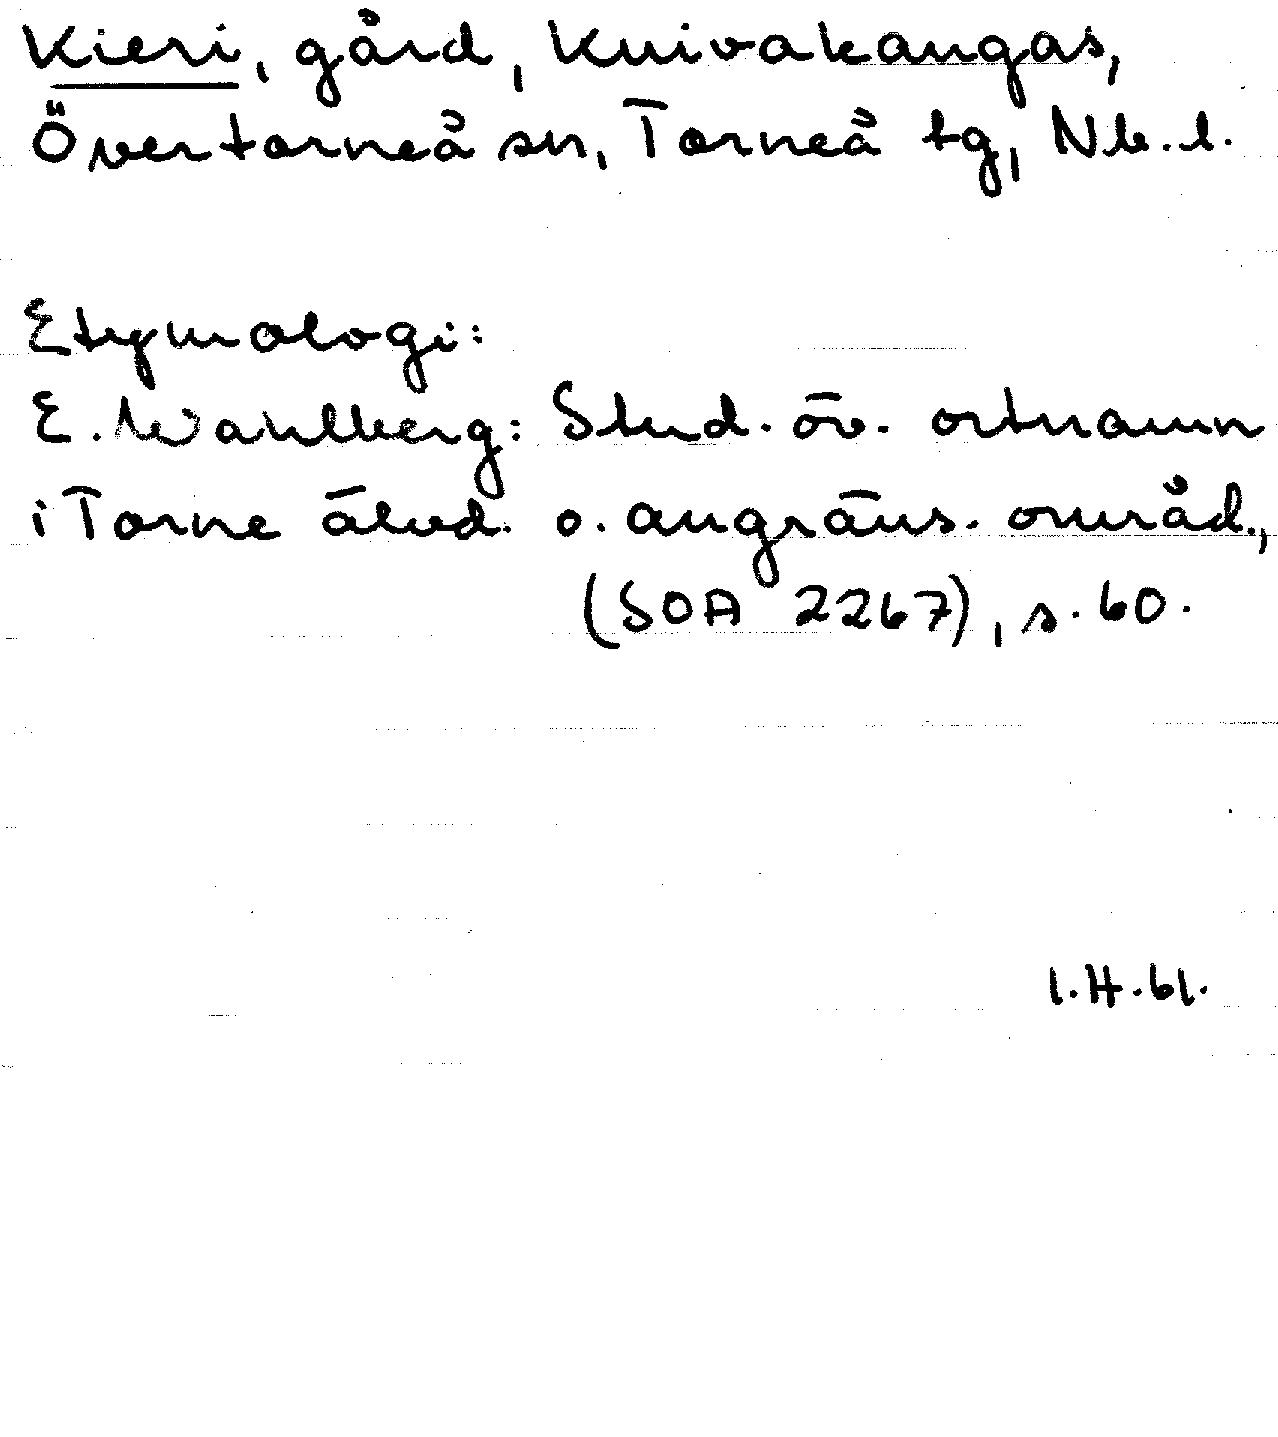 Kieri, gård, Kuivakangas,
Övertorneå sn, Torneå tg, Nb.l.
Etymologi:
E. Wahlberg: Stud. öv. ortnamn
i Torne älvd. o. angräns. områd.,
(SOA 2267), s. 60.
I.H.61.